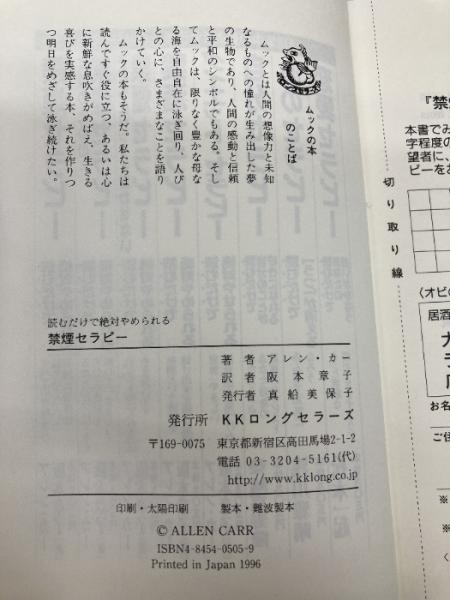 ムックの本
のことば
ムックとは人間の想像力と未知
なるものへの憧れが生み出した夢
の生物であり、人間の感動と信頼
と平和のシンボルでもある。そし
てムックは、限りなく豊かな母な
る海を自由自在に泳ぎ回り、人び
との心に、さまざまなことを語り
かけていく。
ムックの本もそうだ。私たちは
読んですぐ役に立つ、あるいは心
に新鮮な息吹きがめばえ、生きる
喜びを実感する本、それを作りつ
つ明日をめざして泳ぎ続けたい。
読むだけで絶対やめられる
禁煙セラピー
著者 アレン・カー
訳者 阪本章子
発行者 真船美保子
発行所 KKロングセラーズ
〒169-0075 東京都新宿区高田馬場2-1-2
電話 03-3204-5161(代)
http://www.kklong.co.jp
印刷・太陽印刷 製本・難波製本
© ALLEN CARR
ISBN4-8454-0505-9
Printed in Japan 1996
切り取り線
『禁
本書でみ
字程度の
望者に、
ピーをお
〈オビの
居酒
お名
ご住
※
※